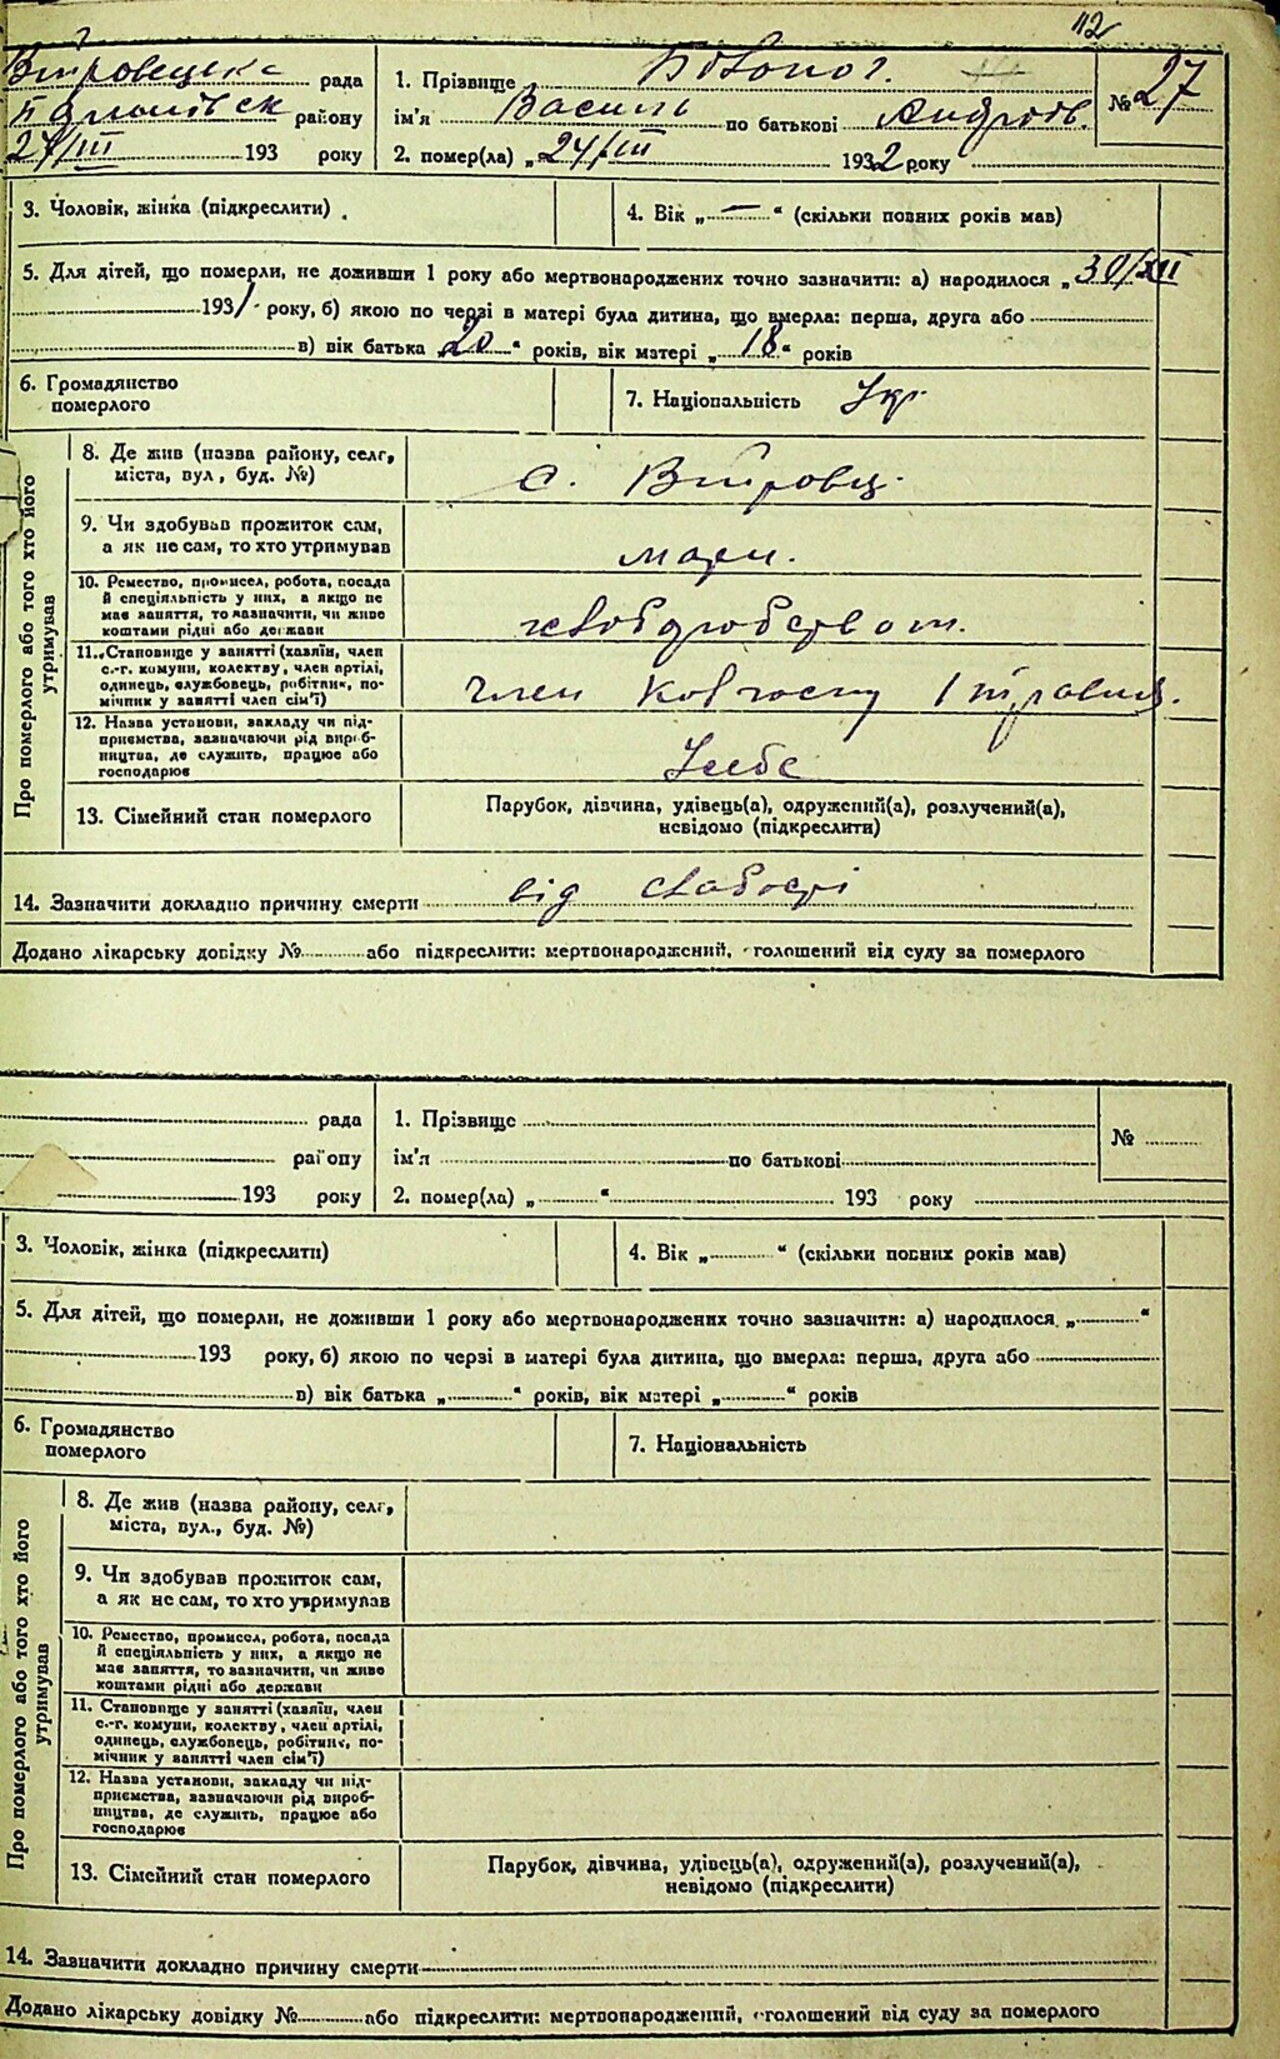 112
Вітровецька рада
району
24/III 193 року
1. Прізвище Бовоног.
ім'я Василь по батькові Андрієв.
2. помер(ла) „24/III 1932 року
№ 27
3. Чоловік, жінка (підкреслити)
4. Вік „—“ (скільки повних років мав)
5. Для дітей, що померли, не доживши 1 року або мертвонароджених точно зазначити: а) народилося „30/XII
1931 року, б) якою по черзі в матері була дитина, що вмерла: перша, друга або
в) вік батька „20“ років, вік матері „18“ років
6. Громадянство
померлого
7. Національність Укр.
Про померлого або того хто його
утримував
8. Де жив (назва району, селг,
міста, вул, буд. №)
с. Вітровц.
9. Чи здобував прожиток сам,
а як не сам, то хто утримував
10. Ремество, промисел, робота, посада
й спеціяльність у них, а якщо не
має заняття, то зазначити, чи живе
коштами рідні або держави
хлібороботвом.
11. Становище у занятті (хазяїн, член
с.-г. комуни, колектву, член артілі,
одинець, службовець, робітник, по-
мічник у занятті член сім'ї)
член колгоспу 1 травня.
12. Назва установи, закладу чи під-
приємства, зазначаючи рід вироб-
ництва, де служить, працює або
господарює
У себе
13. Сімейний стан померлого
Парубок, дівчина, удівець(а), одружений(а), розлучений(а),
невідомо (підкреслити)
14. Зазначити докладно причину смерти від слабості
Додано лікарську довідку № або підкреслити: мертвонароджений, оголошений від суду за померлого
рада
району
193 року
1. Прізвище
ім'я по батькові
2. помер(ла) „ “ 193 року
№
3. Чоловік, жінка (підкреслити)
4. Вік „ “ (скільки повних років мав)
5. Для дітей, що померли, не доживши 1 року або мертвонароджених точно зазначити: а) народилося „ “
193 року, б) якою по черзі в матері була дитина, що вмерла: перша, друга або
в) вік батька „ “ років, вік матері „ “ років
6. Громадянство
померлого
7. Національність
Про померлого або того хто його
утримував
8. Де жив (назва району, селг,
міста, вул., буд. №)
9. Чи здобував прожиток сам,
а як не сам, то хто утримував
10. Ремество, промисел, робота, посада
й спеціяльність у них, а якщо не
має заняття, то зазначити, чи живе
коштами рідні або держави
11. Становище у занятті (хазяїн, член
с.-г. комуни, колектву, член артілі,
одинець, службовець, робітник, по-
мічник у занятті член сім'ї)
12. Назва установи, закладу чи під-
приємства, зазначаючи рід вироб-
ництва, де служить, працює або
господарює
13. Сімейний стан померлого
Парубок, дівчина, удівець(а), одружений(а), розлучений(а),
невідомо (підкреслити)
14. Зазначити докладно причину смерти
Додано лікарську довідку № або підкреслити: мертвонароджений, оголошений від суду за померлого